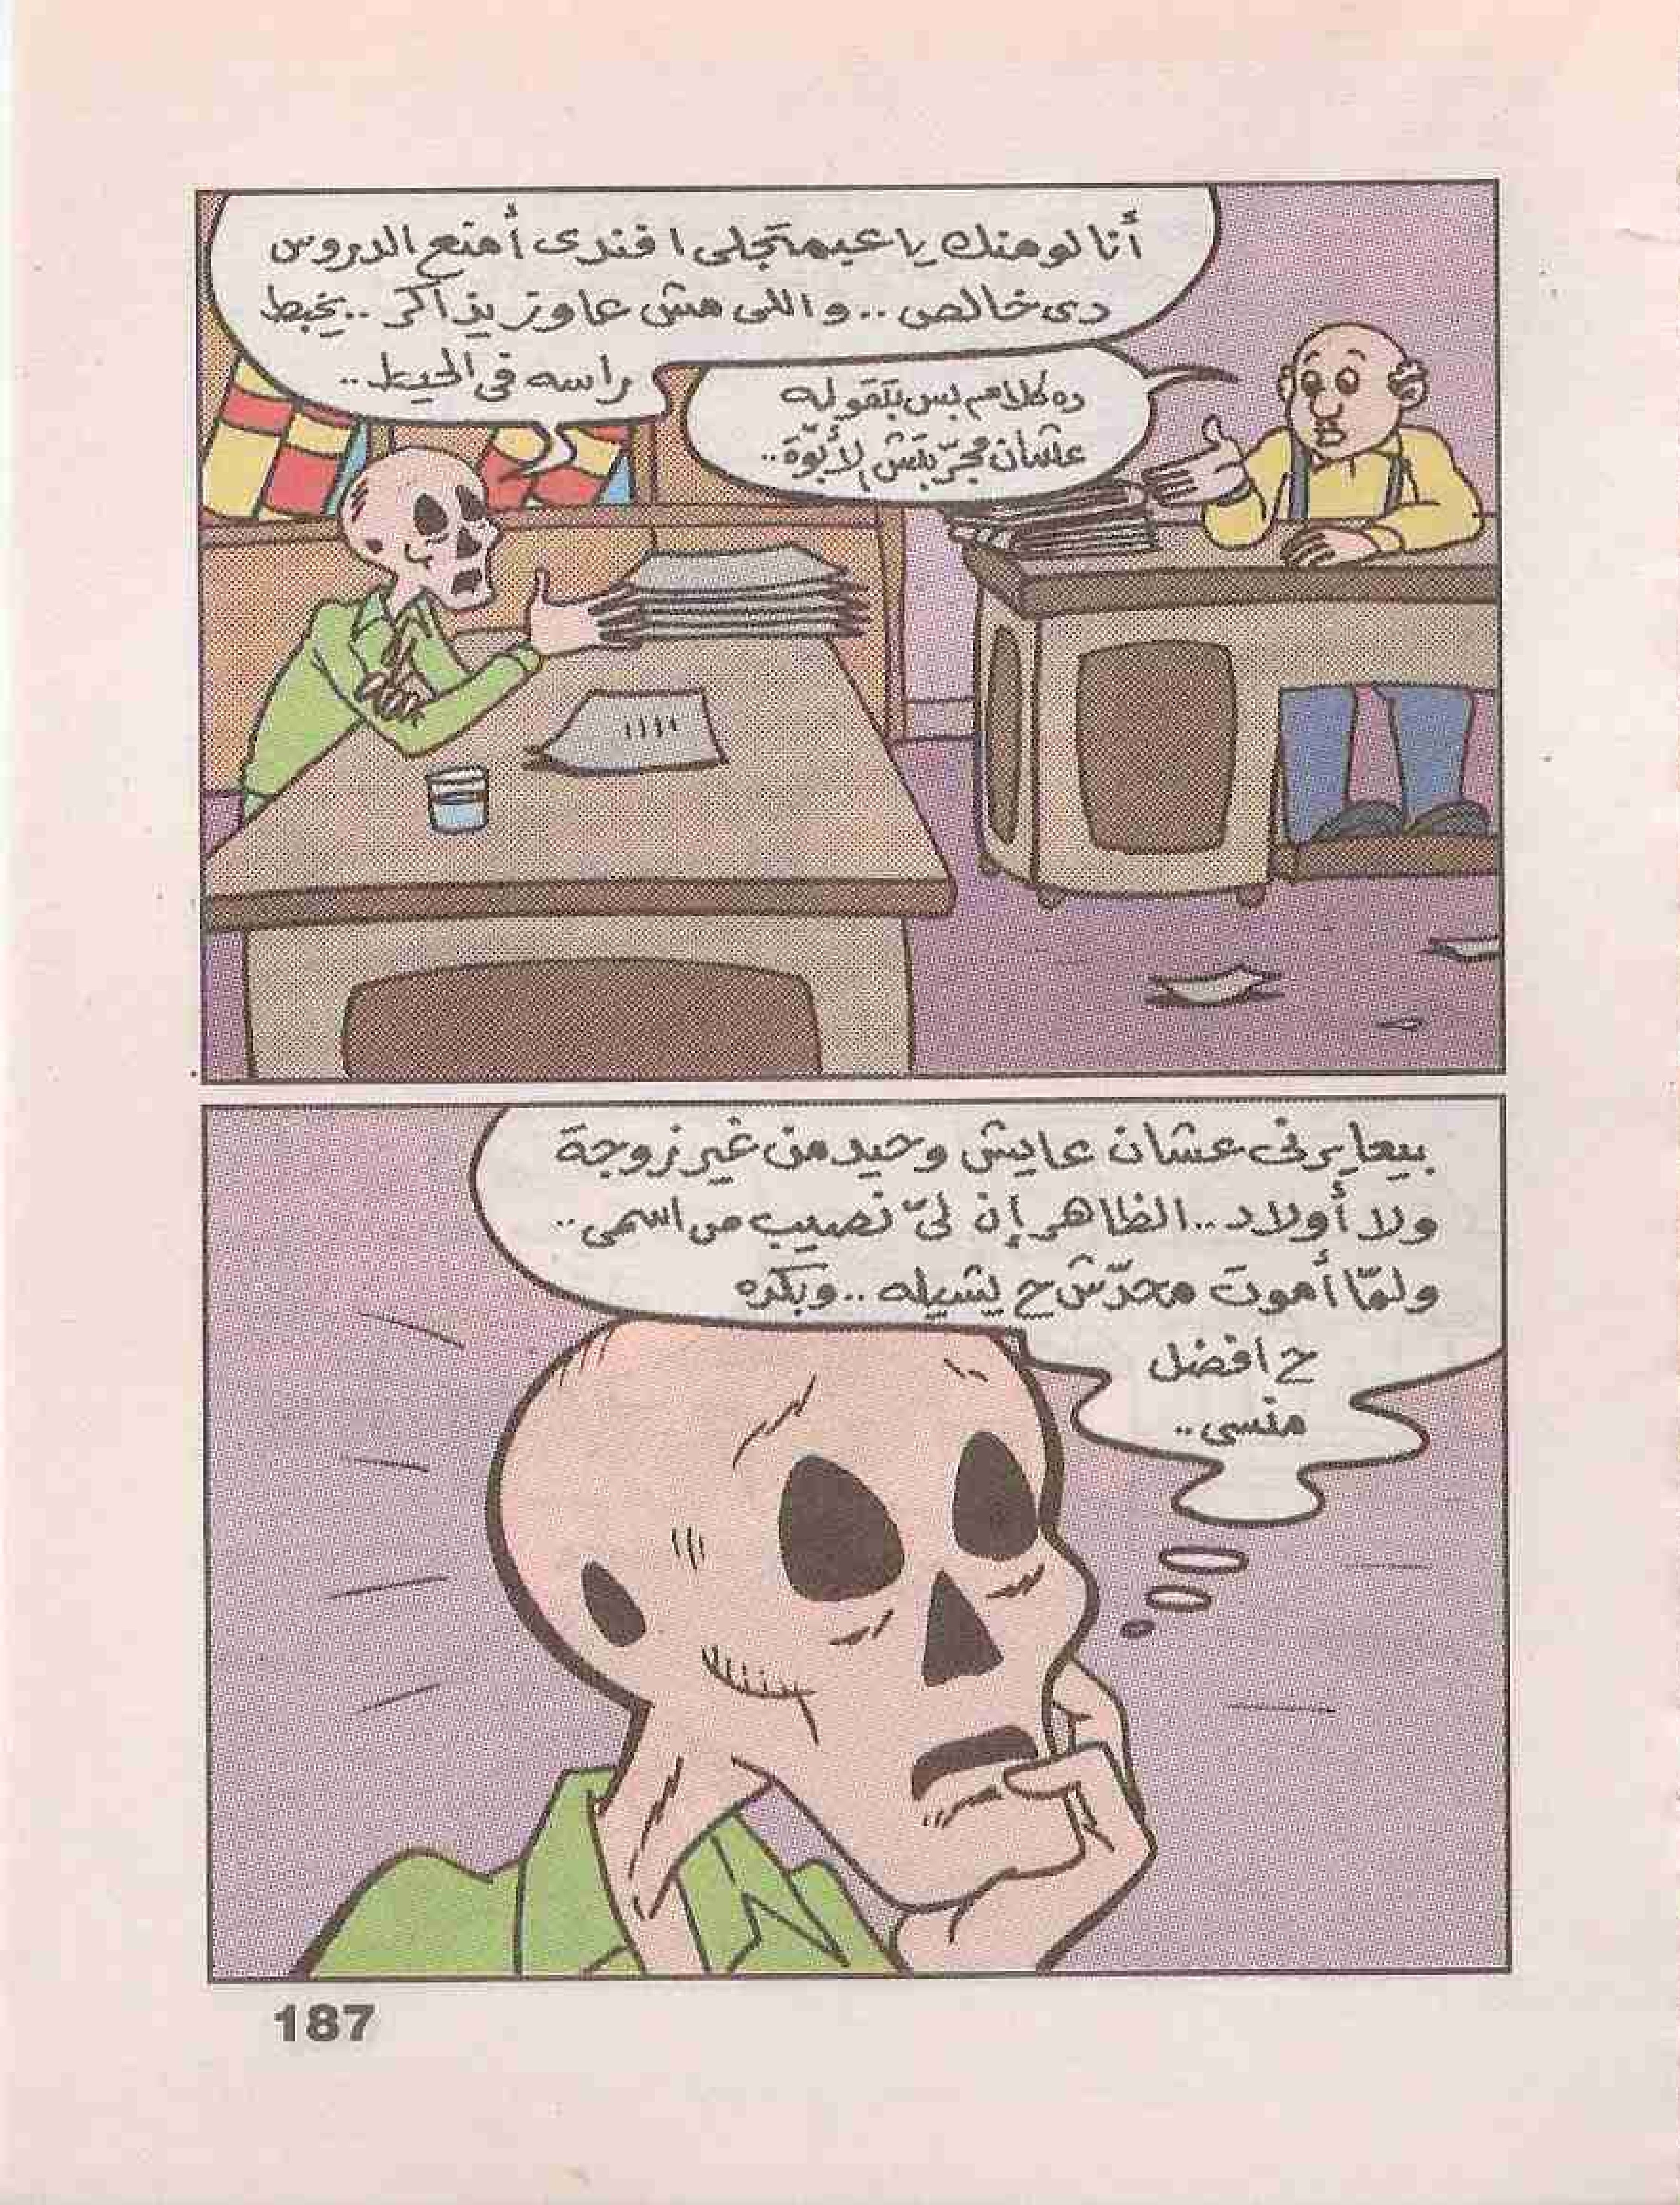 أنا لو منك يا عبمتجلى افندى أمنع الدروس
دى خالص .. واللى مش عاوز يذاكر .. يخبط
راسه فى الحيط ..
ده كلام بس بتقوله
عشان مجرّبتش الأبوّة ..
بيعايرنى عشان عايش وحيد من غير زوجة
ولا أولاد .. الظاهر إن لىّ نصيب من اسمى ..
ولمّا أموت محدّش ح يشيله .. وبكده
ح افضل
منسى ..
187